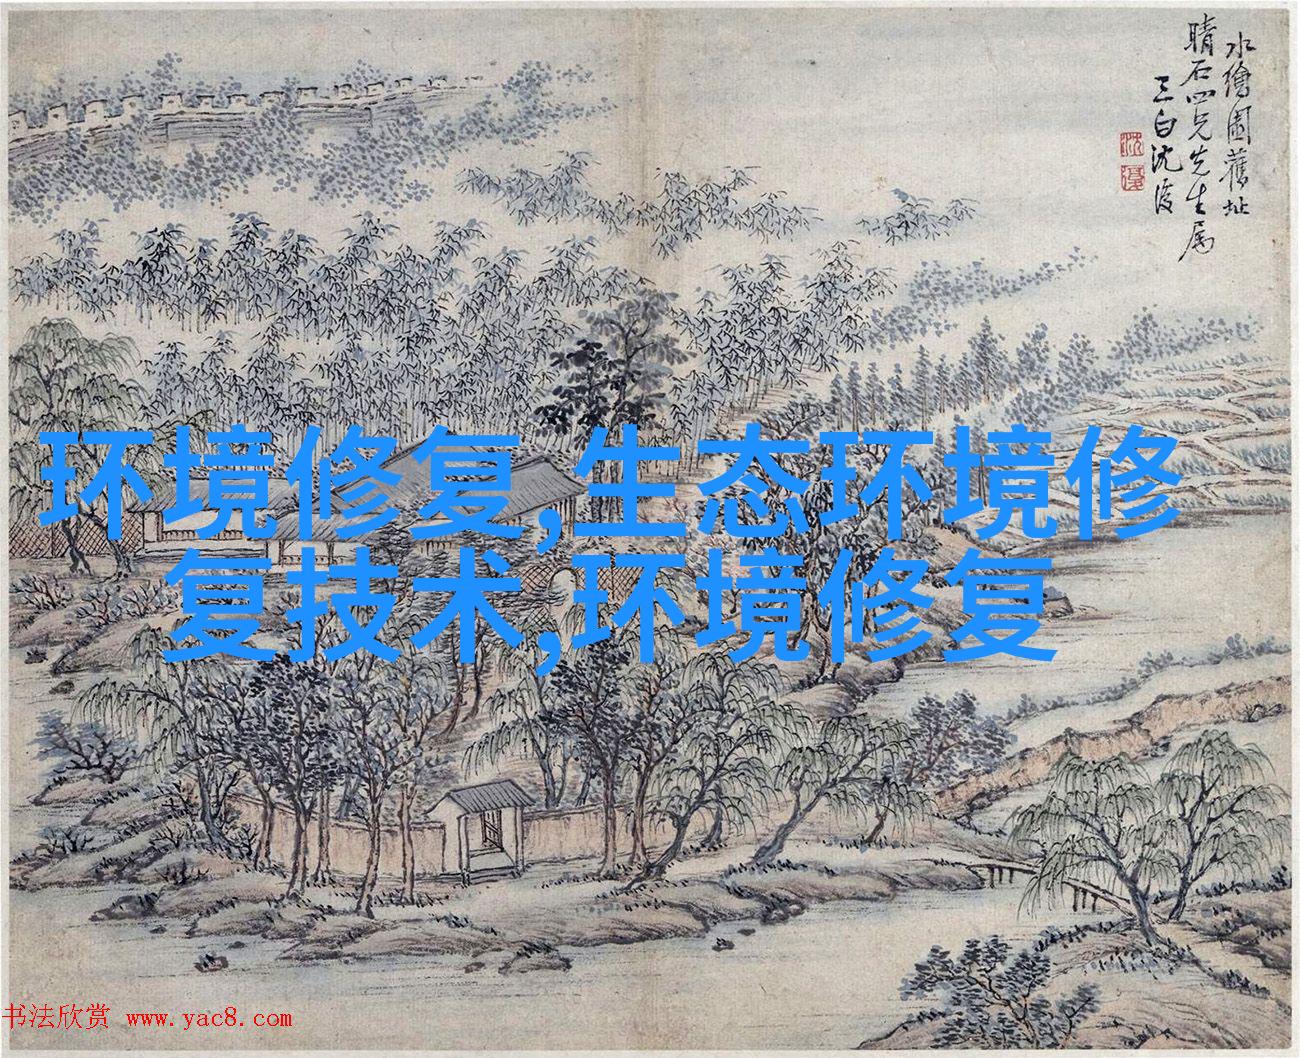 水繪園舊址
晴石四兄先生属
三白沈復
沈
復
环境修复,生态环境修
复技术,环境修复
书法欣赏 www.yac8.com